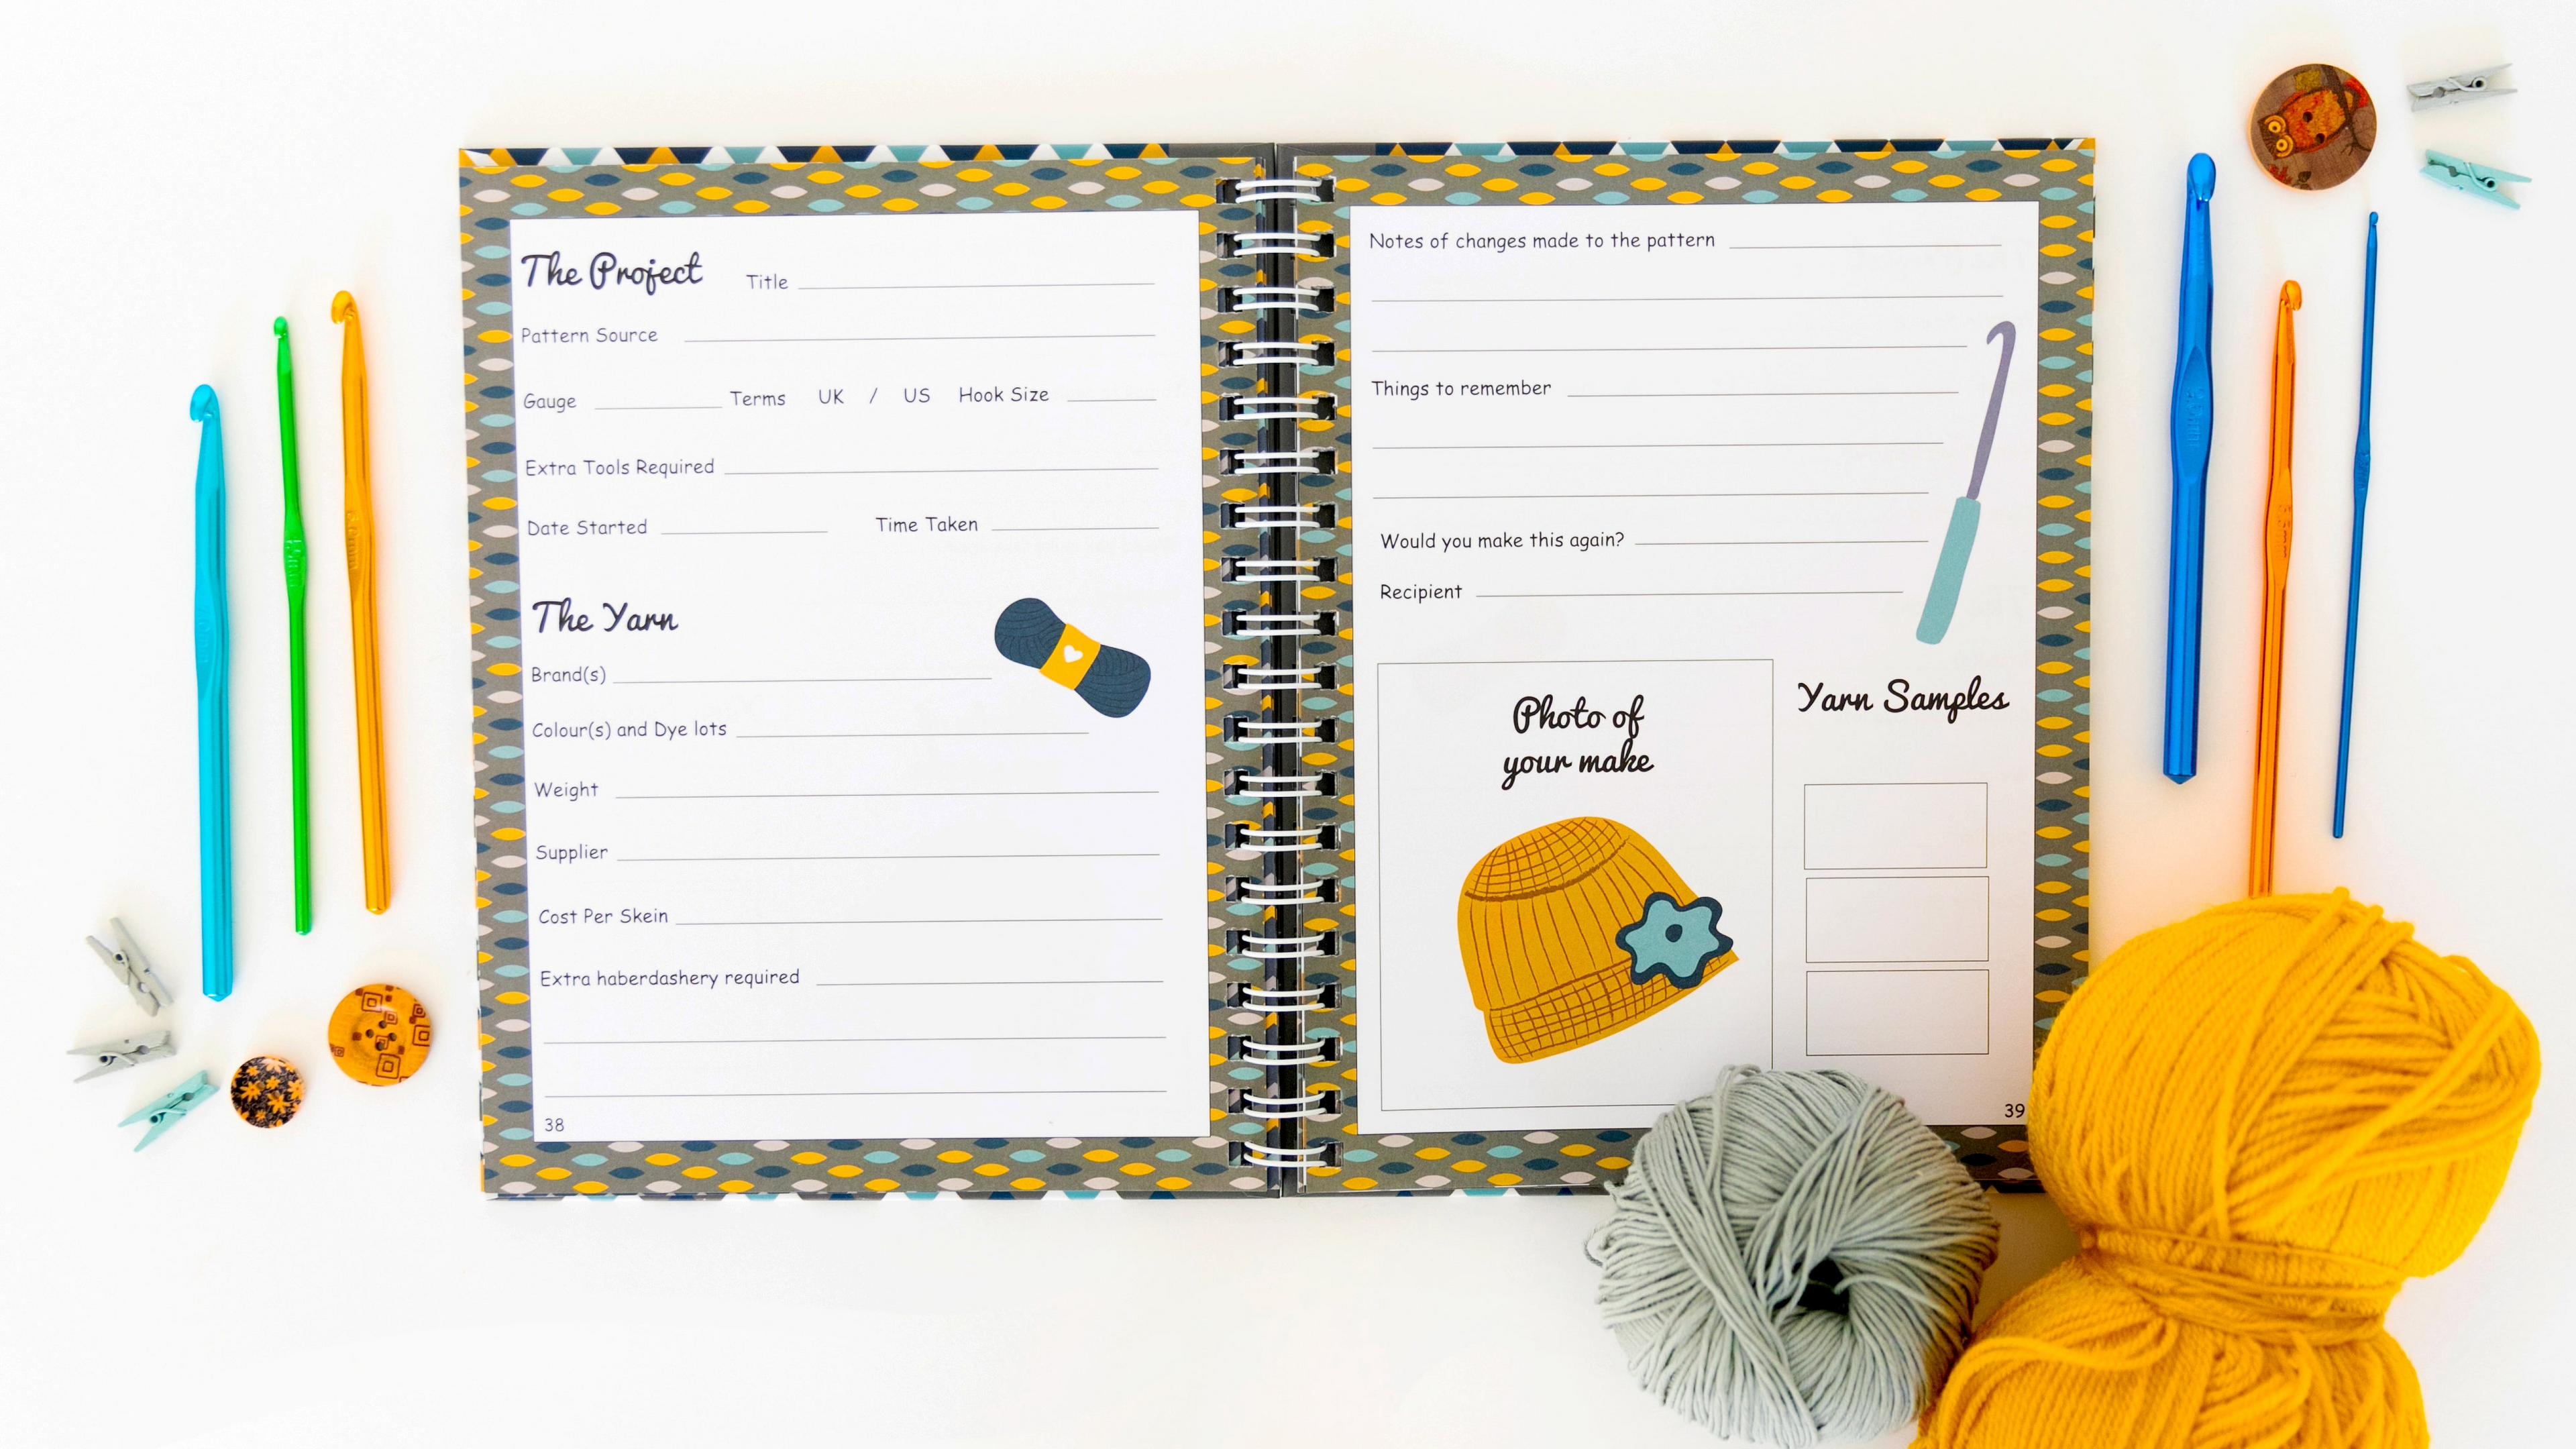 The Project Title
Pattern Source
Gauge Terms UK / US Hook Size
Extra Tools Required
Date Started Time Taken
The Yarn
Brand(s)
Colour(s) and Dye lots
Weight
Supplier
Cost Per Skein
Extra haberdashery required
38
Notes of changes made to the pattern
Things to remember
Would you make this again?
Recipient
Photo of
your make
Yarn Samples
39